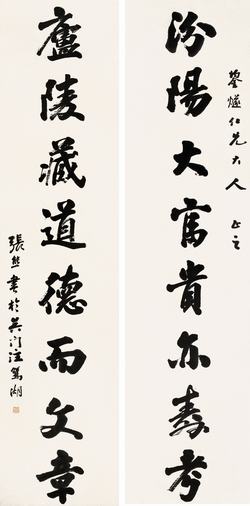 仁兄大人 正之
汾陽大富貴亦壽考
廬陵藏道德而文章
張熊書於吳門鴛湖